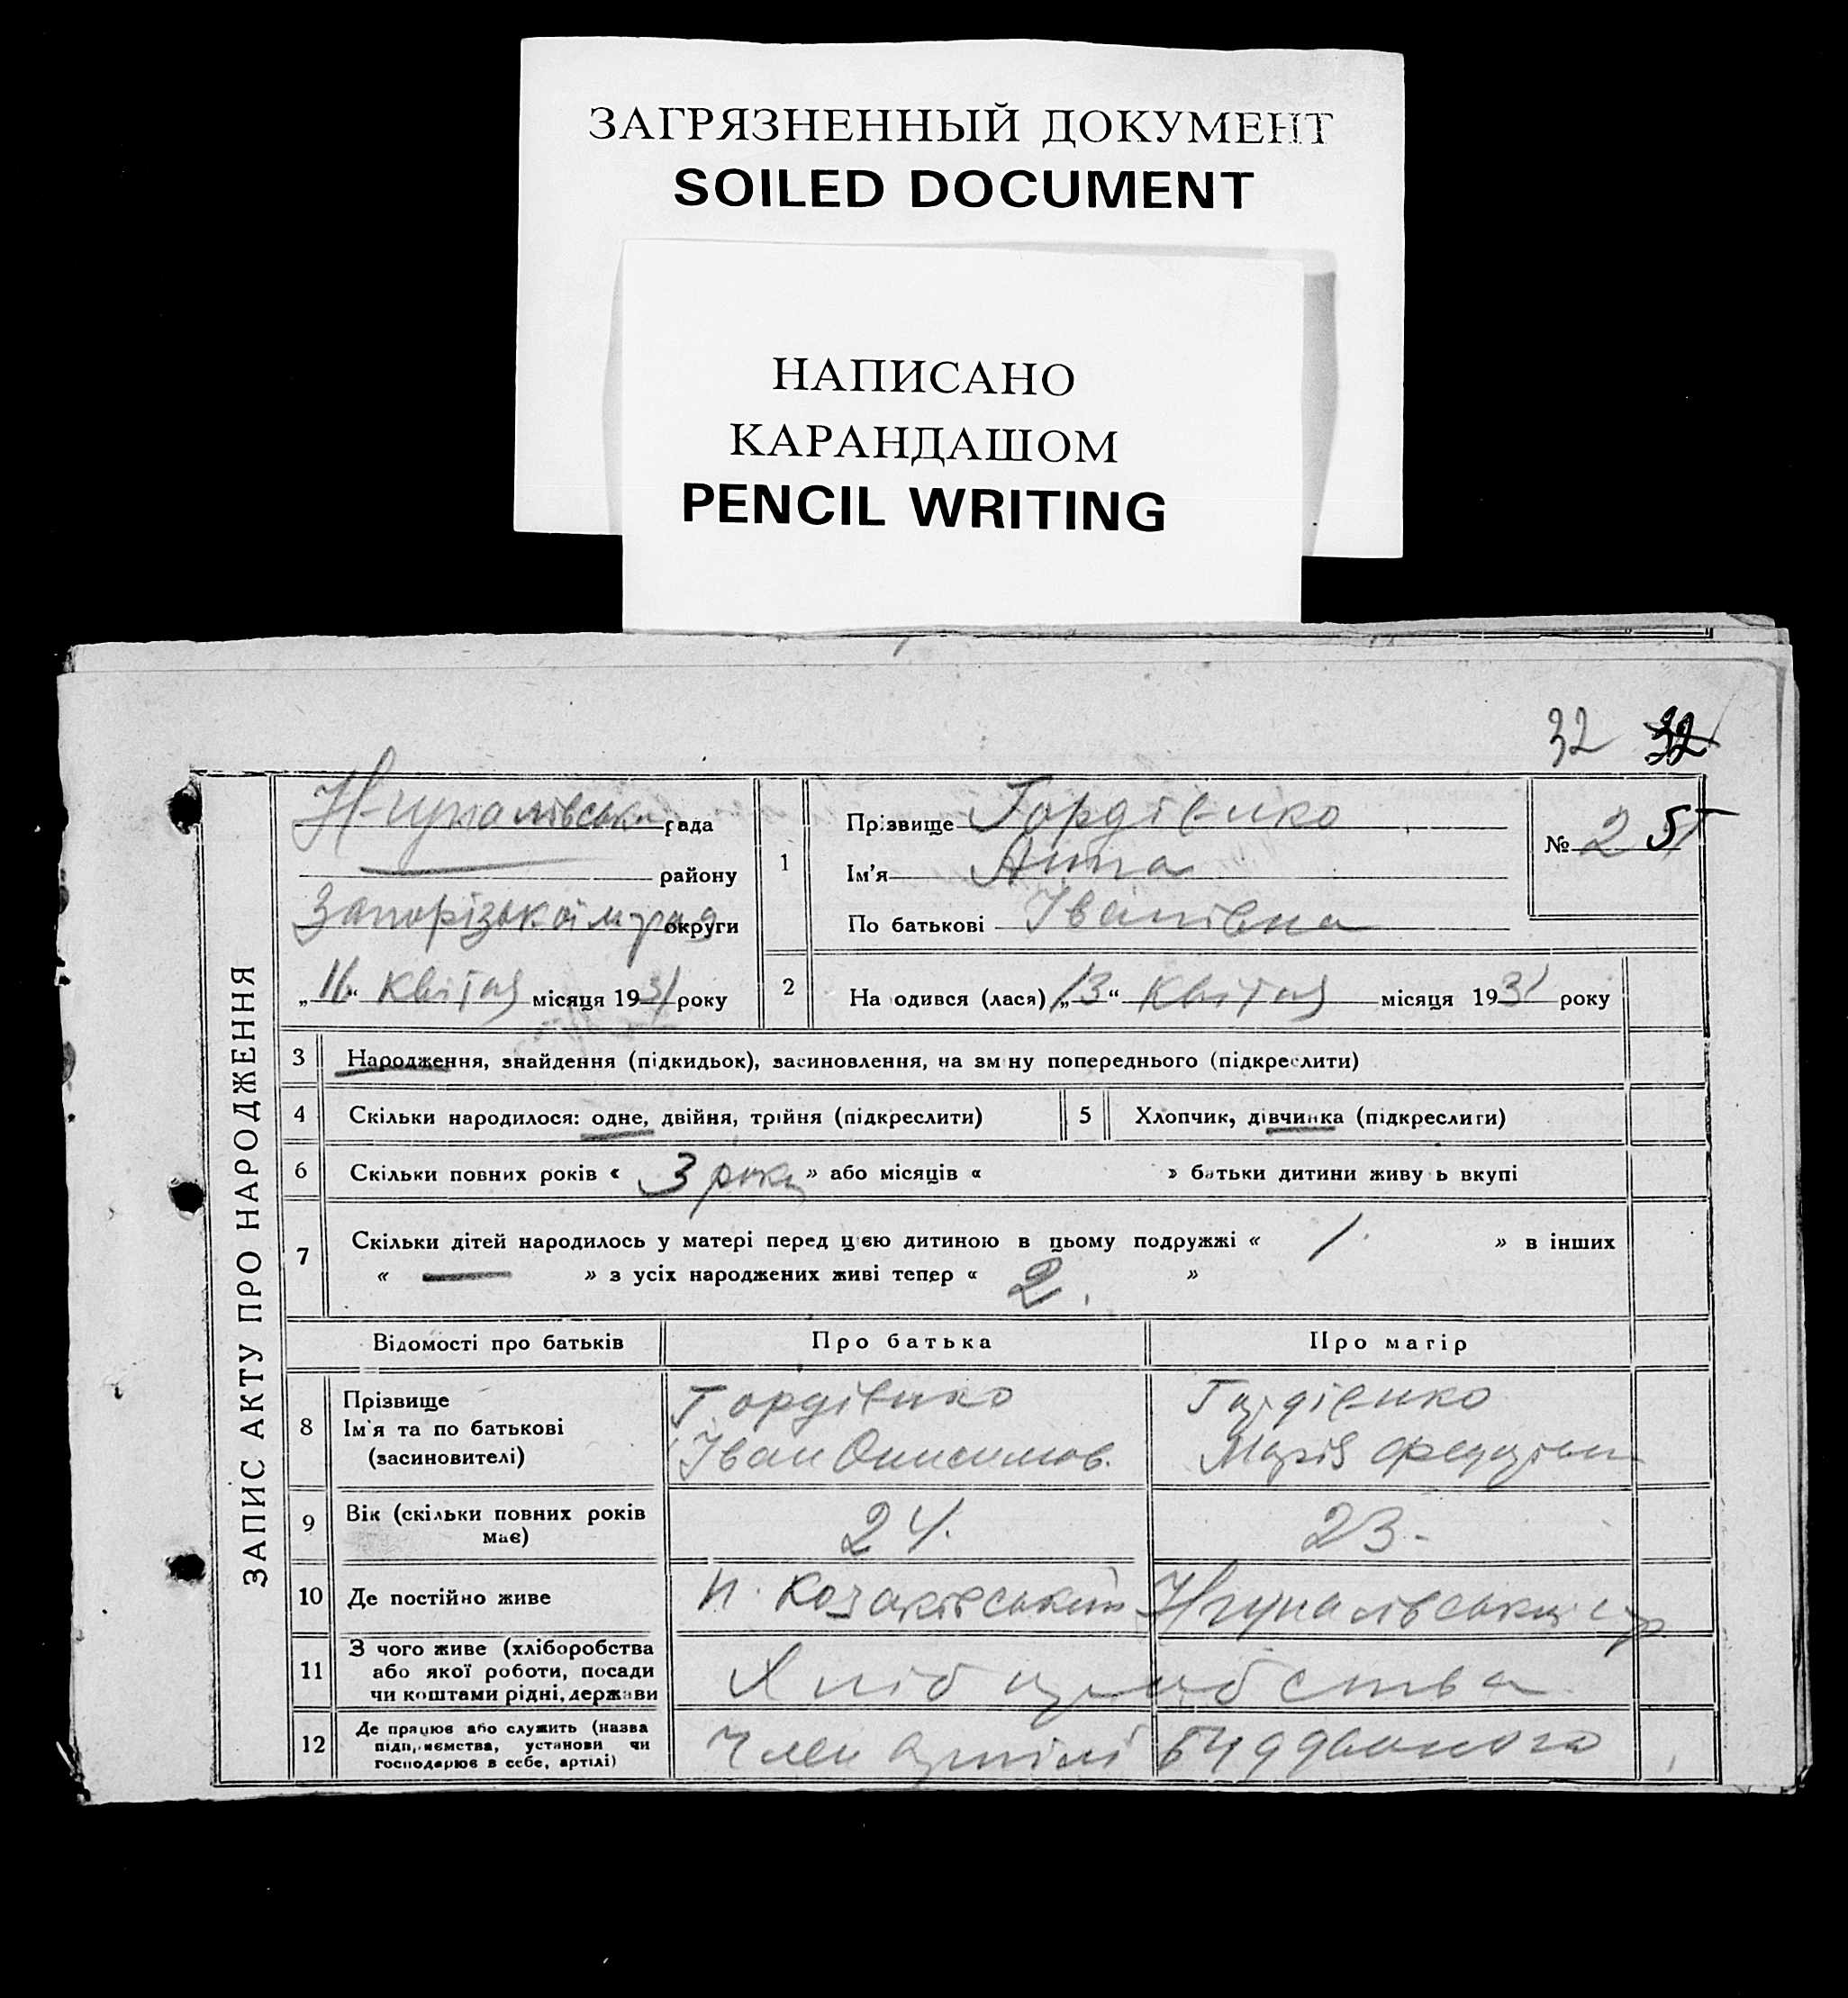 ЗАГРЯЗНЕННЫЙ ДОКУМЕНТ
SOILED DOCUMENT
НАПИСАНО
КАРАНДАШОМ
PENCIL WRITING
32 32
ЗАПИС АКТУ ПРО НАРОДЖЕННЯ
рада
району
Запорізької округи
„16“ квітня місяця 1931 року
1
Прізвище Гордієнко
Ім'я Анна
По батькові Іванівна
№ 25
2 На одився (лася) „13“ квітня місяця 1931 року
3 Народження, знайдення (підкидьок), засиновлення, на зм ну попереднього (підкреслити)
4 Скільки народилося: одне, двійня, трійня (підкреслити)
5 Хлопчик, дівчинка (підкреслити)
6 Скільки повних років « 3 роки » або місяців « » батьки дитини живу ь вкупі
7 Скільки дітей народилось у матері перед цією дитиною в цьому подружжі « 1. » в інших
« — » з усіх народжених живі тепер « 2. »
Відомості про батьків Про батька Про матір
8 Прізвище Гордієнко Гордієнко
Ім'я та по батькові Іван Онисимов. Марія
(засиновителі)
9 Вік (скільки повних років має) 24. 23.
10 Де постійно живе
11 З чого живе (хліборобства
або якої роботи, посади
чи коштами рідні, держави
Хліборобства
12 Де працює або служить (назва
підприємства, установи чи
господарює в себе, артілі)
Член артілі